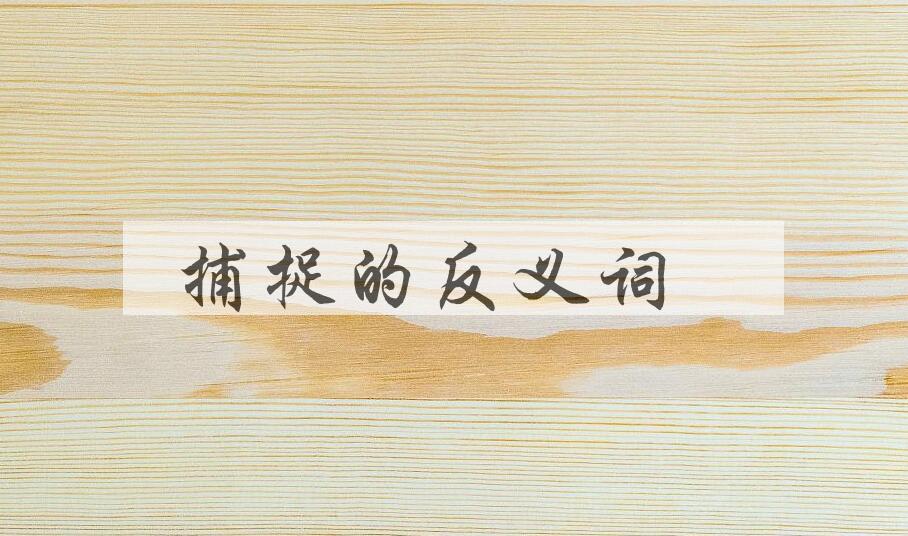 捕捉的反义词